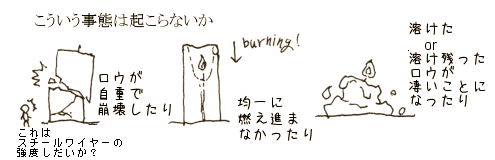 こういう事態は起こらないか
ロウが
自重で
崩壊したり
これは
スチールワイヤーの
強度しだいか？
burning!
均一に
燃え進ま
なかったり
溶けた
or
溶け残った
ロウが
凄いことに
なったり